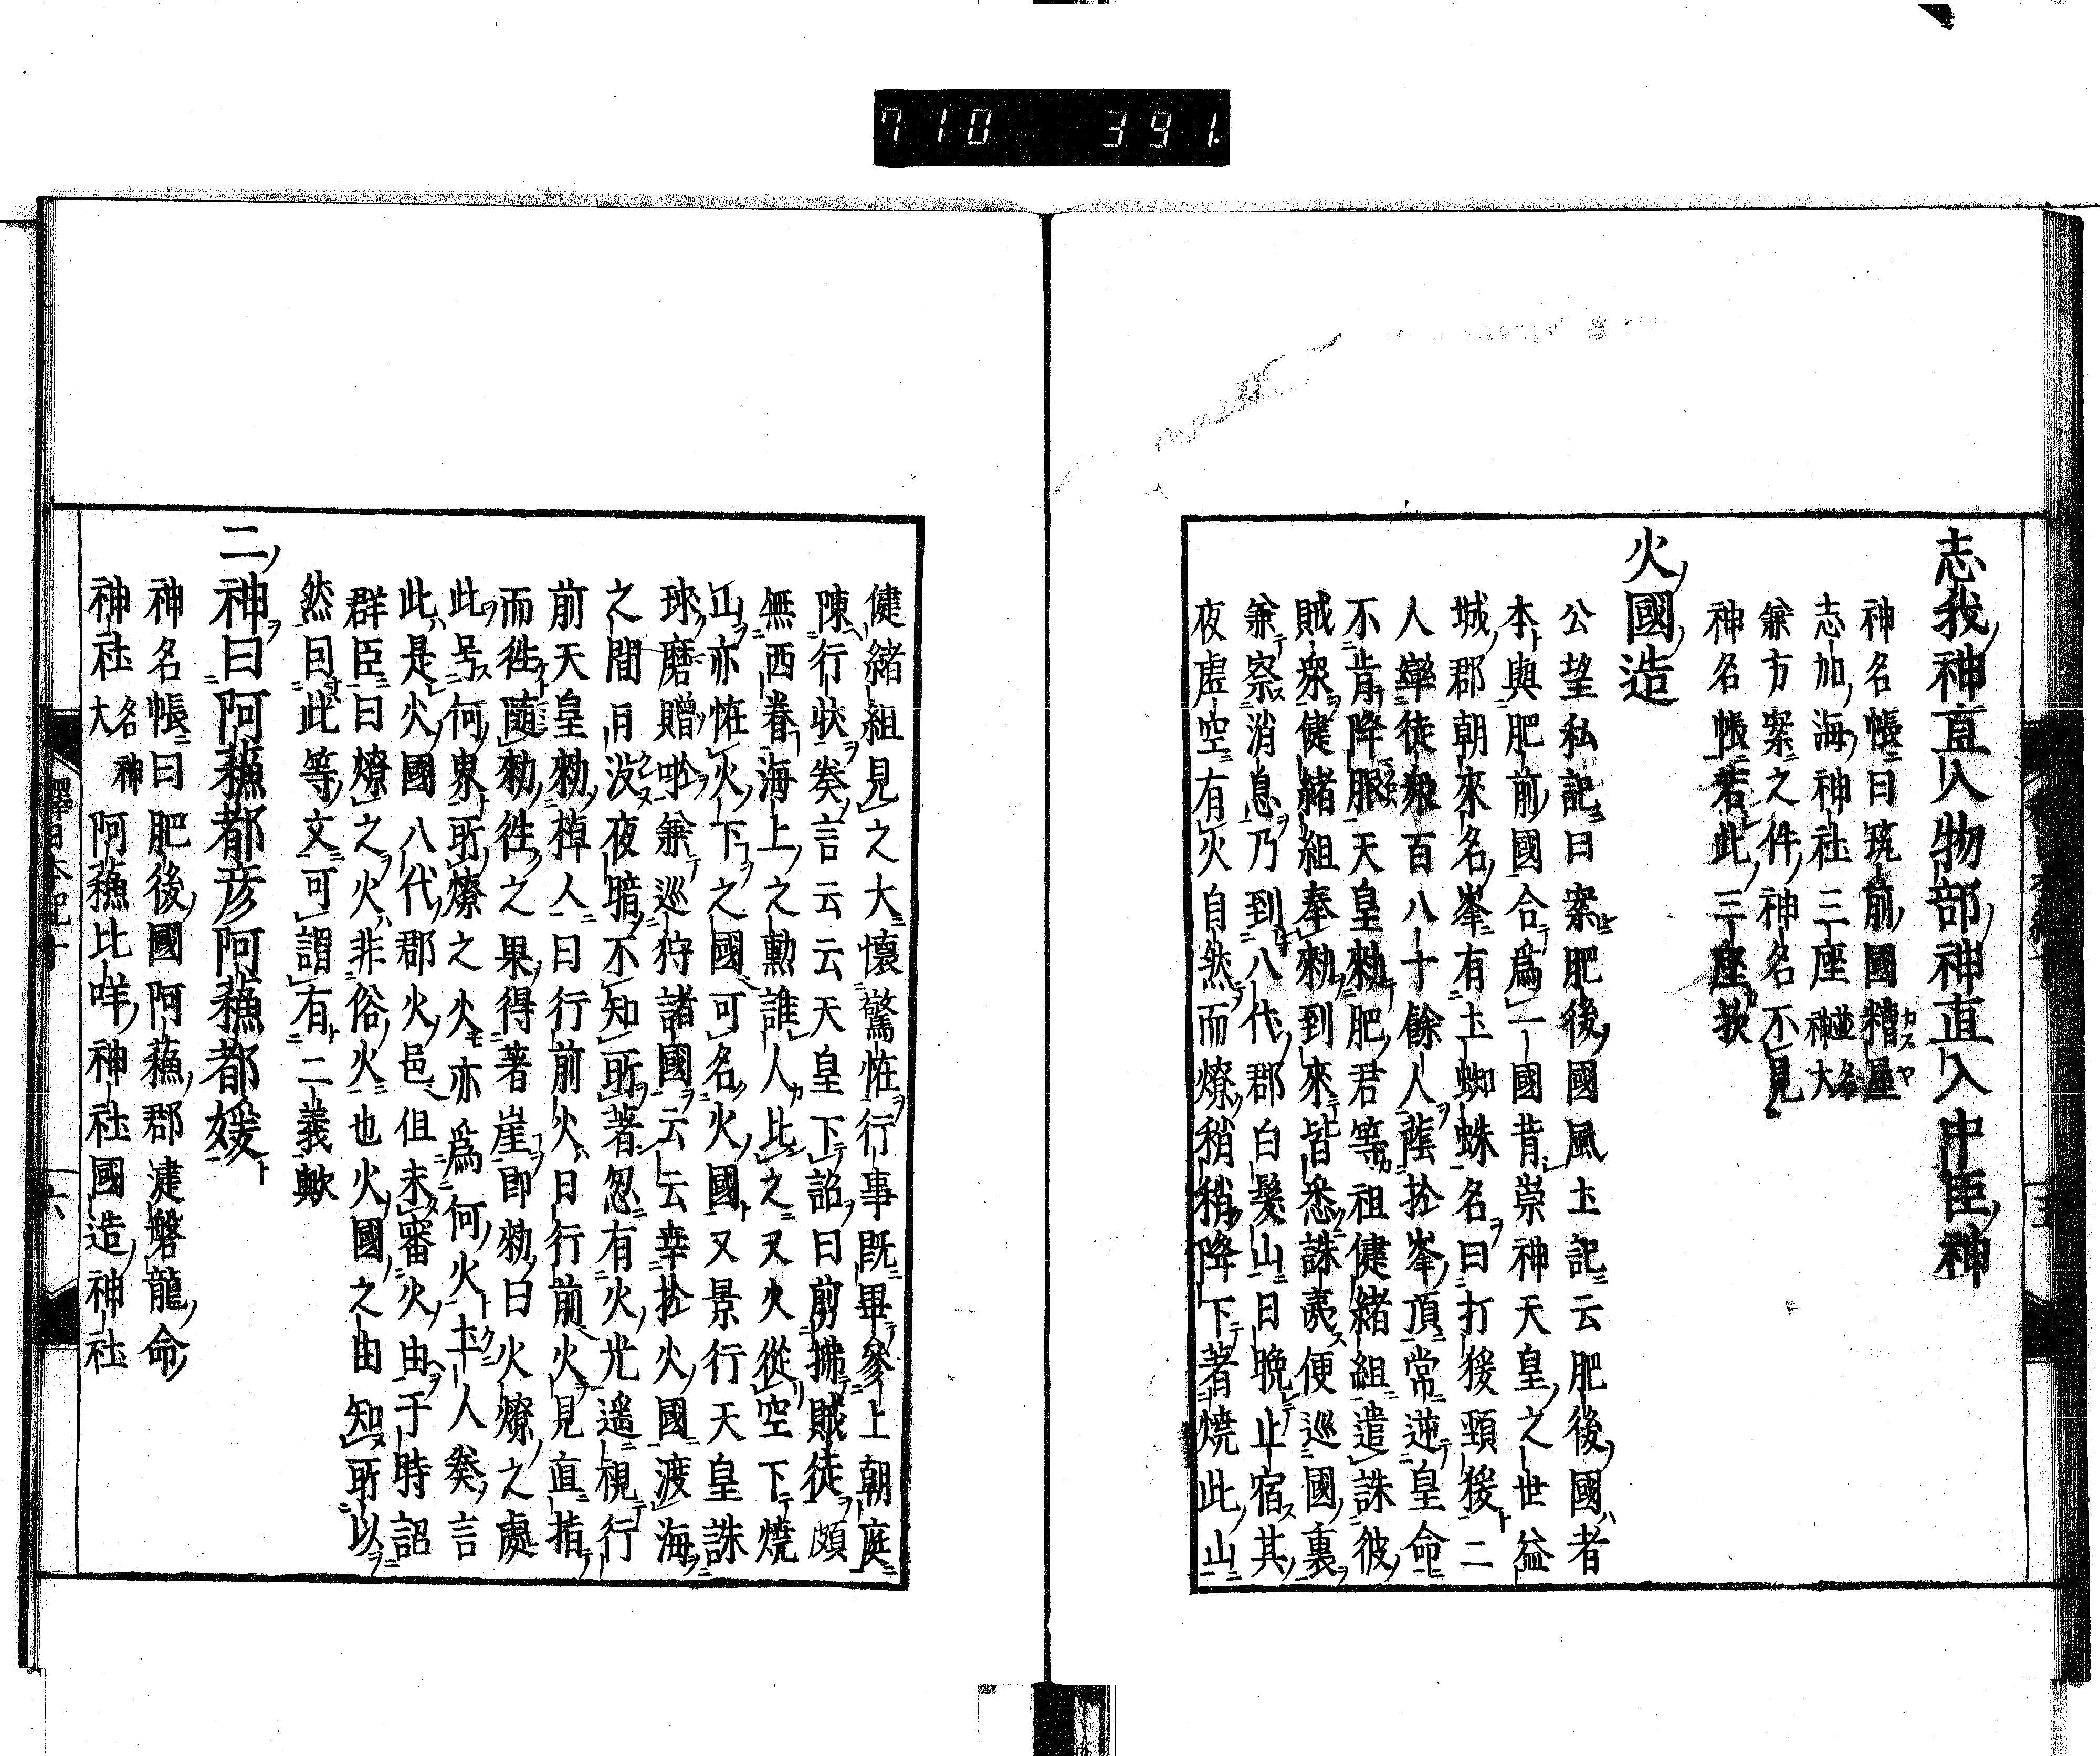 710 391.
志我神直入物部神直入中臣神
神名帳曰筑前國糟屋
志加海神社三座並名神大
兼方案之件神名不見
神名帳若此三座欤
火國造
公望私記曰案肥後國風土記云肥後國者
本與肥前國合爲一國昔崇神天皇之世益
城郡朝來名峯有土蜘蛛名曰打猨頸猨二
人率徒衆百八十餘人蔭於峯頂常逆皇命
不肯降服天皇勅肥君等祖健緒組遣誅彼
賊衆健緒組奉勅到來皆悉誅夷便巡國裏
兼察消息乃到八代郡白髮山日晚止宿其
夜虛空有火自然而燎稍稍降下著燒此山
健緒組見之大懷驚恠行事既畢參上朝庭
陳行狀矣言云云天皇下詔曰剪拂賊徒頗
無西眷海上之勳誰人比之又火從空下燒
山亦恠火下之國可名火國又景行天皇誅
球磨贈唹兼巡狩諸國云云幸於火國渡海
之間日没夜暗不知所著忽有火光遥視行
前天皇勅棹人曰行前火日行前火見直指
而徃隨勅徃之果得著崖即勅曰火燎之處
此号何界所燎之火亦爲何火土人癸言
此是火國八代郡火邑但未審火由于時詔
群臣曰燎之火非俗火也火國之由知所以
然囙此等文可謂有二義歟
二神曰阿蘓都彦阿蘓都媛
神名帳曰肥後國阿蘓郡健磐龍命
神社名神大阿蘓比咩神社國造神社
釋日本紀十
六